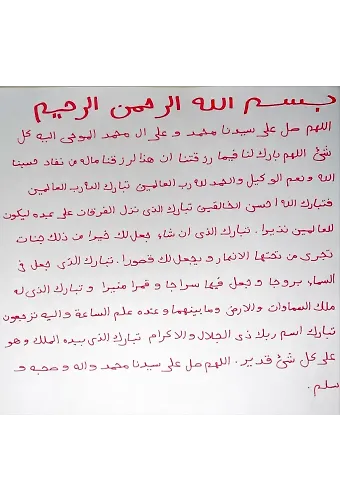 بسم الله الرحمن الرحيم
اللهم صل على سيدنا محمد و على ال محمد الموحى اليه كل
شئ اللهم بارك لنا فيما رزقتنا ان هذا لرزقنا ماله من نفاد حسبنا
الله و نعم الوكيل والحمد لله رب العالمين تبارك الله رب العالمين
فتبارك الله احسن الخالقين تبارك الذى نزل الفرقان على عبده ليكون
للعالمين نذيرا . تبارك الذى ان شاء جعل لك خيرا من ذلك جنات
تجرى من تحتها الانهار و يجعل لك قصورا . تبارك الذى جعل فى
السماء بروجا و جعل فيها سراجا و قمرا منيرا و تبارك الذى له
ملك السماوات والارض وما بينهما و عنده علم الساعة و اليه ترجعون
تبارك اسم ربك ذى الجلال والاكرام تبارك الذى بيده الملك و هو
على كل شئ قدير . اللهم صل على سيدنا محمد و اله و صحبه و
سلم .